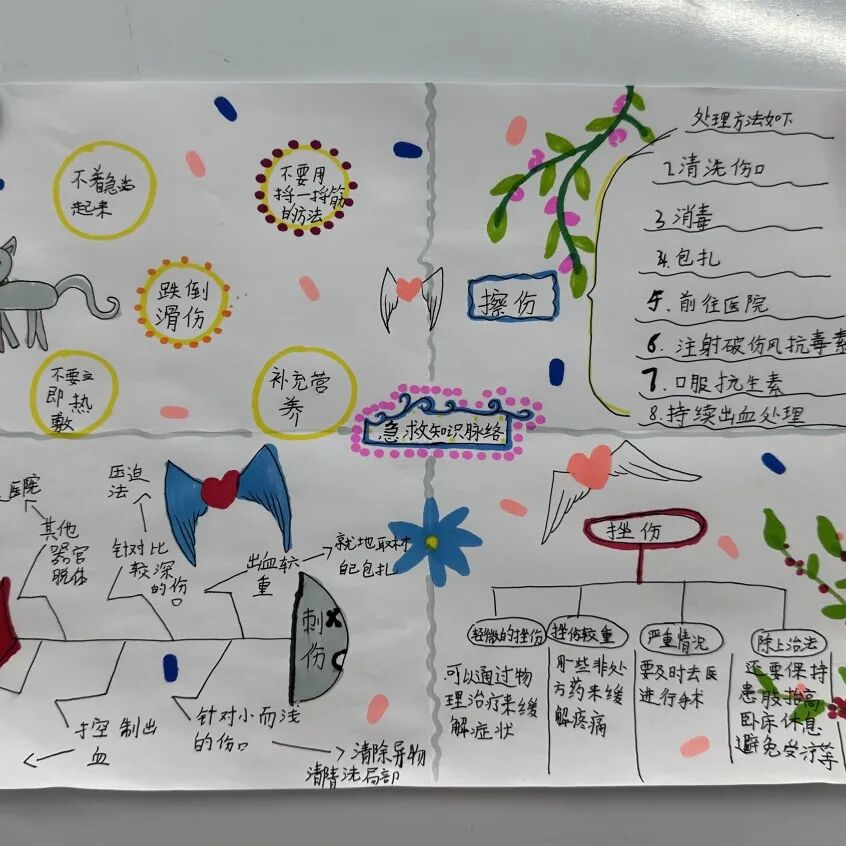 不着急站
起来
不要用
捋一捋筋
的方法
跌倒
滑伤
不要立
即热
敷
补充营
养
急救知识脉络
擦伤
处理方法如下
2清洗伤口
3消毒
4.包扎
5、前往医院
6、注射破伤风抗毒素
7、口服抗生素
8.持续出血处理
医院
其他
器官
脱体
压迫
法
针对比
较深
的伤
口
出血较
重
就地取材
自己包扎
刺
伤
控制出
血
针对小而浅
的伤口
清除异物
清洗局部
挫伤
轻微的挫伤
可以通过物
理治疗来缓
解症状
挫伤较重
用一些非处
方药来缓
解疼痛
严重情况
要及时去医
进行手术
除上治法
还要保持
患肢抬高
卧床休息
避免
等